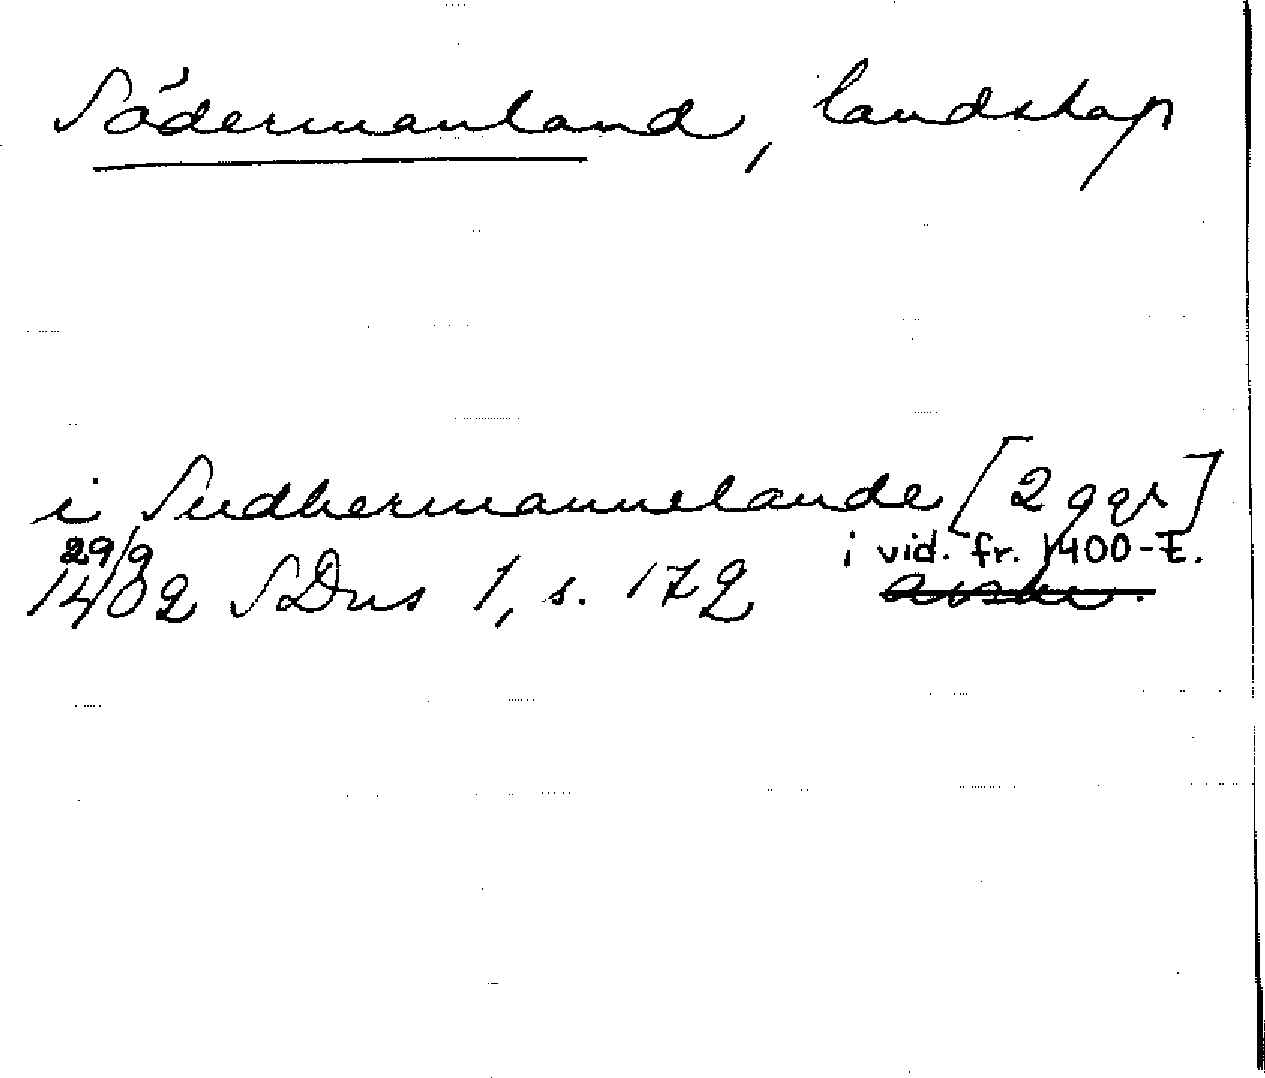 Södermanland, landskap
i Sudhermannelande [2 ggr]
29/9 i vid. fr. 1400-t.
1402 SDns 1, s. 172 avskr.